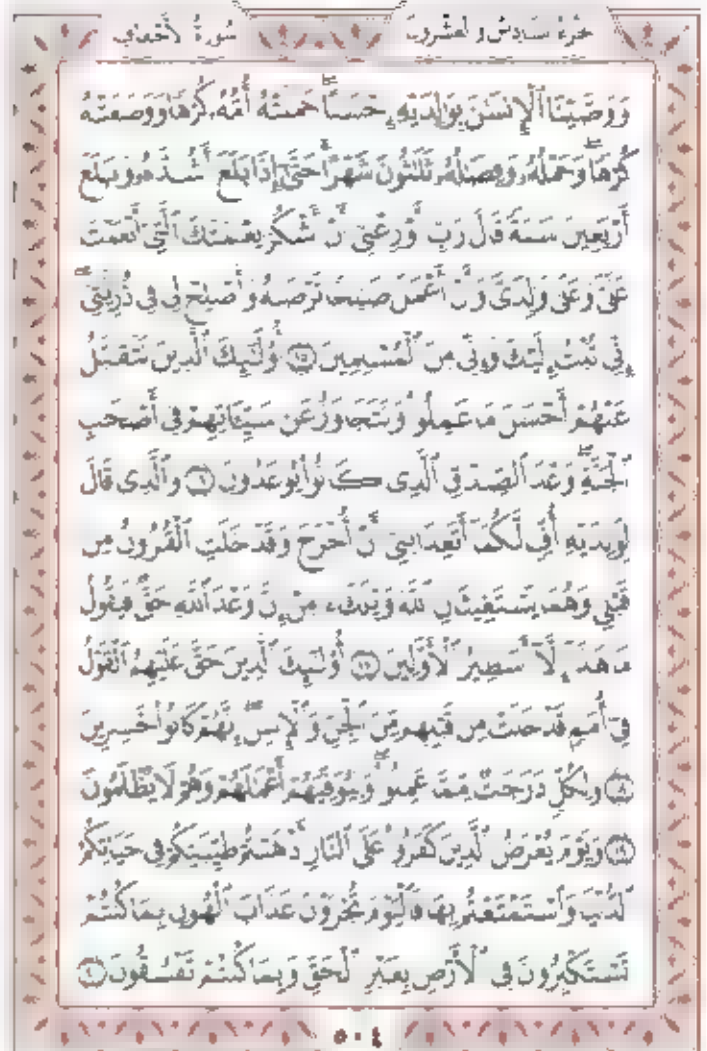 الجزء السادس والعشرون
سورة الأحقاف
وَوَصَّيْنَا ٱلْإِنسَٰنَ بِوَٰلِدَيْهِ حُسْنًا حَمَلَتْهُ أُمُّهُۥ كُرْهًا وَوَضَعَتْهُ
كُرْهًا وَحَمْلُهُۥ وَفِصَٰلُهُۥ ثَلَٰثُونَ شَهْرًا حَتَّىٰٓ إِذَا بَلَغَ أَشُدَّهُۥ وَبَلَغَ
أَرْبَعِينَ سَنَةً قَالَ رَبِّ أَوْزِعْنِىٓ أَنْ أَشْكُرَ نِعْمَتَكَ ٱلَّتِىٓ أَنْعَمْتَ
عَلَىَّ وَعَلَىٰ وَٰلِدَىَّ وَأَنْ أَعْمَلَ صَٰلِحًا تَرْضَىٰهُ وَأَصْلِحْ لِى فِى ذُرِّيَّتِىٓ
إِنِّى تُبْتُ إِلَيْكَ وَإِنِّى مِنَ ٱلْمُسْلِمِينَ ١٥ أُو۟لَٰٓئِكَ ٱلَّذِينَ نَتَقَبَّلُ
عَنْهُمْ أَحْسَنَ مَا عَمِلُوا۟ وَنَتَجَاوَزُ عَن سَيِّـَٔاتِهِمْ فِىٓ أَصْحَٰبِ
ٱلْجَنَّةِ وَعْدَ ٱلصِّدْقِ ٱلَّذِى كَانُوا۟ يُوعَدُونَ ١٦ وَٱلَّذِى قَالَ
لِوَٰلِدَيْهِ أُفٍّ لَّكُمَآ أَتَعِدَانِنِىٓ أَنْ أُخْرَجَ وَقَدْ خَلَتِ ٱلْقُرُونُ مِن
قَبْلِى وَهُمَا يَسْتَغِيثَانِ ٱللَّهَ وَيْلَكَ ءَامِنْ إِنَّ وَعْدَ ٱللَّهِ حَقٌّ فَيَقُولُ
مَا هَٰذَآ إِلَّآ أَسَٰطِيرُ ٱلْأَوَّلِينَ ١٧ أُو۟لَٰٓئِكَ ٱلَّذِينَ حَقَّ عَلَيْهِمُ ٱلْقَوْلُ
فِىٓ أُمَمٍ قَدْ خَلَتْ مِن قَبْلِهِم مِّنَ ٱلْجِنِّ وَٱلْإِنسِ إِنَّهُمْ كَانُوا۟ خَٰسِرِينَ
١٨ وَلِكُلٍّ دَرَجَٰتٌ مِّمَّا عَمِلُوا۟ وَلِيُوَفِّيَهُمْ أَعْمَٰلَهُمْ وَهُمْ لَا يُظْلَمُونَ
١٩ وَيَوْمَ يُعْرَضُ ٱلَّذِينَ كَفَرُوا۟ عَلَى ٱلنَّارِ أَذْهَبْتُمْ طَيِّبَٰتِكُمْ فِى حَيَاتِكُمُ
ٱلدُّنْيَا وَٱسْتَمْتَعْتُم بِهَا فَٱلْيَوْمَ تُجْزَوْنَ عَذَابَ ٱلْهُونِ بِمَا كُنتُمْ
تَسْتَكْبِرُونَ فِى ٱلْأَرْضِ بِغَيْرِ ٱلْحَقِّ وَبِمَا كُنتُمْ تَفْسُقُونَ ٢٠
٥٠٤